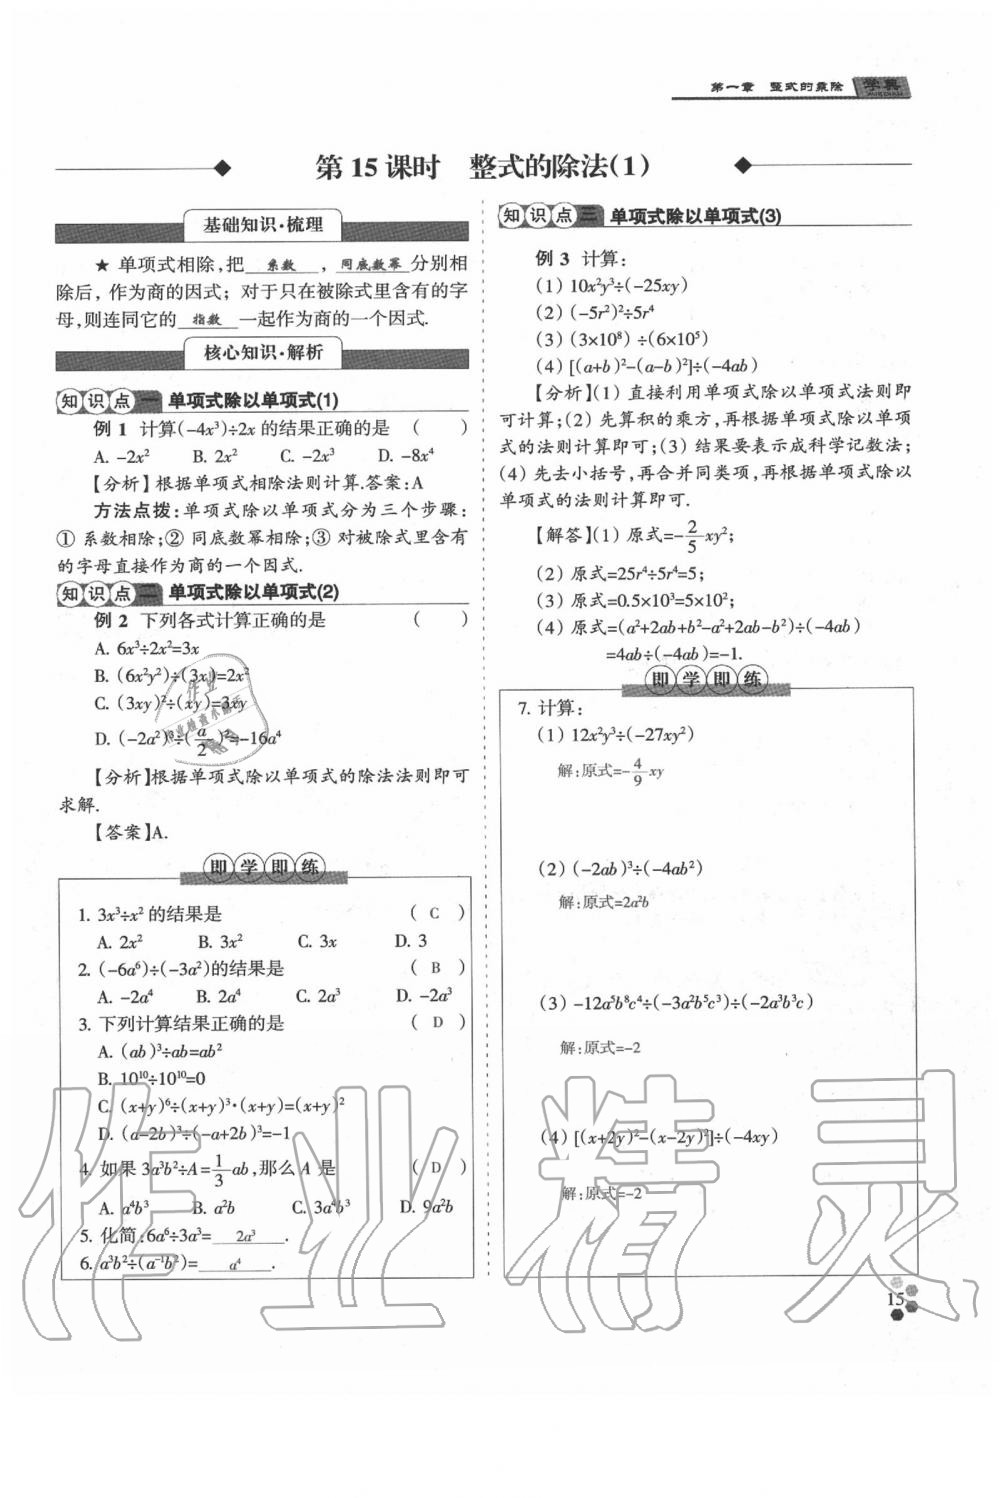 第一章 整式的乘除 学典
第 15 课时 整式的除法(1)
基础知识·梳理
★ 单项式相除,把 系数 ，同底数幂 分别相
除后，作为商的因式；对于只在被除式里含有的字
母,则连同它的 指数 一起作为商的一个因式.
核心知识·解析
知识点一 单项式除以单项式(1)
例 1 计算(-4x³)÷2x 的结果正确的是 （ ）
A. -2x² B. 2x² C. -2x³ D. -8x⁴
【分析】根据单项式相除法则计算.答案:A
方法点拨:单项式除以单项式分为三个步骤:
① 系数相除;② 同底数幂相除;③ 对被除式里含有
的字母直接作为商的一个因式.
知识点二 单项式除以单项式(2)
例 2 下列各式计算正确的是 （ ）
A. 6x³÷2x²=3x
B. (6x²y²)÷(3x)=2x²
C. (3xy)²÷(xy)=3xy
D. (-2a²)³÷(a/2)²=-16a⁴
【分析】根据单项式除以单项式的除法法则即可
求解.
【答案】A.
即学即练
1. 3x³÷x² 的结果是 ( C )
A. 2x² B. 3x² C. 3x D. 3
2. (-6a⁶)÷(-3a²)的结果是 ( B )
A. -2a⁴ B. 2a⁴ C. 2a³ D. -2a³
3. 下列计算结果正确的是 ( D )
A. (ab)³÷ab=ab²
B. 10¹⁰÷10¹⁰=0
C. (x+y)⁶÷(x+y)³·(x+y)=(x+y)²
D. (a-2b)³÷(-a+2b)³=-1
4. 如果 3a³b²÷A=1/3 ab,那么 A 是 ( D )
A. a⁴b³ B. a²b C. 3a⁴b³ D. 9a²b
5. 化简:6a⁶÷3a³= 2a³ .
6. a³b²÷(a⁻¹b²)= a⁴ .
知识点三 单项式除以单项式(3)
例 3 计算：
(1) 10x²y³÷(-25xy)
(2) (-5r²)²÷5r⁴
(3) (3×10⁸) ÷(6×10⁵)
(4) [(a+b)²-(a-b)²]÷(-4ab)
【分析】(1) 直接利用单项式除以单项式法则即
可计算;(2) 先算积的乘方,再根据单项式除以单项
式的法则计算即可;(3) 结果要表示成科学记数法;
(4) 先去小括号,再合并同类项,再根据单项式除以
单项式的法则计算即可.
【解答】(1) 原式=-2/5 xy²;
(2) 原式=25r⁴÷5r⁴=5;
(3) 原式=0.5×10³=5×10²;
(4) 原式=(a²+2ab+b²-a²+2ab-b²)÷(-4ab)
=4ab÷(-4ab)=-1.
即学即练
7. 计算：
(1) 12x²y³÷(-27xy²)
解:原式=-4/9 xy
(2) (-2ab)³÷(-4ab²)
解:原式=2a²b
(3) -12a⁵b⁸c⁴÷(-3a²b⁵c³)÷(-2a³b³c)
解:原式=-2
(4) [(x+2y)²-(x-2y)²]÷(-4xy)
解:原式=-2
15
作业精灵